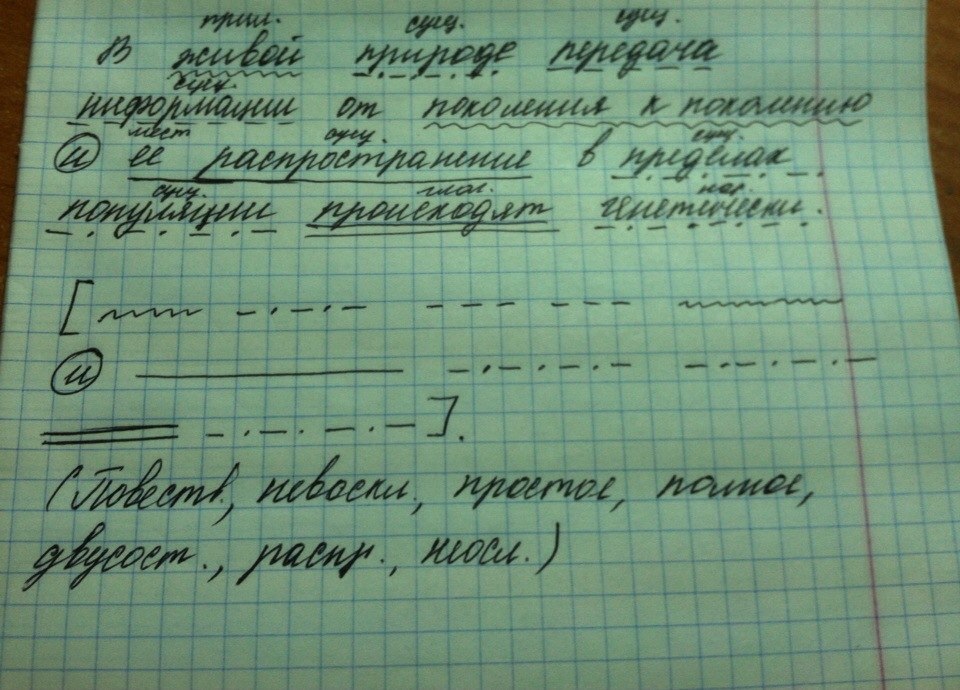 прил. сущ. сущ.
В живой природе передача
сущ.
информации от поколения к поколению
мест сущ. сущ.
и ее распространение в пределах
сущ. глаг. нар.
популяции происходят генетически.
[
и
].
(Повеств, невоскл., простое, полное,
двусост., распр., неосл.)